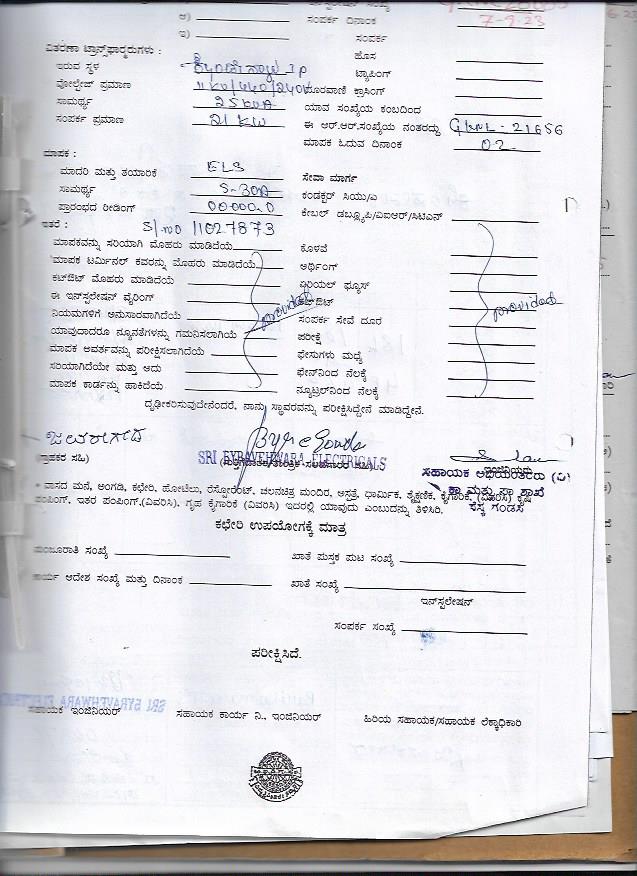 ಅ) ಸಂಪರ್ಕ ದಿನಾಂಕ 7-9-23
ಇ) ಸಂಪರ್ಕ
ವಿತರಣಾ ಟ್ರಾನ್ಸ್‌ಫಾರ್ಮರುಗಳು : ಹೊಸ
ಇರುವ ಸ್ಥಳ ಟ್ಯಾಪಿಂಗ್
ವೋಲ್ಟೇಜ್ ಪ್ರಮಾಣ 11KV/440/240V ದೂರವಾಣಿ ಕ್ರಾಸಿಂಗ್
ಸಾಮರ್ಥ್ಯ 25KVA ಯಾವ ಸಂಖ್ಯೆಯ ಕಂಬದಿಂದ
ಸಂಪರ್ಕ ಪ್ರಮಾಣ 21 KW ಈ ಆರ್.ಆರ್.ಸಂಖ್ಯೆಯ ನಂತರದ್ದು GKNL-21656
ಮಾಪಕ ಓದುವ ದಿನಾಂಕ 02
ಮಾಪಕ :
ಮಾದರಿ ಮತ್ತು ತಯಾರಿಕೆ ELS ಸೇವಾ ಮಾರ್ಗ
ಸಾಮರ್ಥ್ಯ 5-30A ಕಂಡಕ್ಟರ್ ಸಿಯು/ಎ
ಪ್ರಾರಂಭದ ರೀಡಿಂಗ್ 00000.0 ಕೇಬಲ್ ಡಬ್ಲ್ಯೂಪಿ/ಎಐಆರ್/ಸಿಟಿಎಸ್
ಇತರೆ : Sl.no 11027873
ಮಾಪಕವನ್ನು ಸರಿಯಾಗಿ ಮೊಹರು ಮಾಡಿದೆಯೆ ಕೊಳವೆ
ಮಾಪಕ ಟರ್ಮಿನಲ್ ಕವರನ್ನು ಮೊಹರು ಮಾಡಿದೆಯೆ ಅರ್ಥಿಂಗ್
ಕಟ್‌ಔಟ್ ಮೊಹರು ಮಾಡಿದೆಯೆ ಏರಿಯಲ್ ಫ್ಯೂಸ್
ಈ ಇನ್‌ಸ್ಟಲೇಷನ್ ವೈರಿಂಗ್ provided ಕಟ್‌ಔಟ್ provided
ನಿಯಮಗಳಿಗೆ ಅನುಸಾರವಾಗಿದೆಯೆ ಸಂಪರ್ಕ ಸೇವೆ ದೂರ
ಯಾವುದಾದರೂ ನ್ಯೂನತೆಗಳನ್ನು ಗಮನಿಸಲಾಗಿಯೆ ಪರೀಕ್ಷೆ
ಮಾಪಕ ಆವರ್ತವನ್ನು ಪರೀಕ್ಷಿಸಲಾಗಿದೆಯೆ ಫೇಸುಗಳು ಮಧ್ಯೆ
ಸರಿಯಾಗಿದೆಯೇ ಮತ್ತು ಅದು ಫೇಸ್‌ನಿಂದ ನೆಲಕ್ಕೆ
ಮಾಪಕ ಕಾರ್ಡನ್ನು ಹಾಕಿದೆಯೆ ನ್ಯೂಟ್ರಲ್‌ನಿಂದ ನೆಲಕ್ಕೆ
ದೃಢೀಕರಿಸುವುದೇನೆಂದರೆ, ನಾನು ಸ್ಥಾವರವನ್ನು ಪರೀಕ್ಷಿಸಿದ್ದೇನೆ ಮಾಡಿದ್ದೇನೆ.
SRI BYRAVEHWARA ELECTRICALS
(ಗ್ರಾಹಕರ ಸಹಿ) ಸಹಾಯಕ ಅಭಿಯಂತರರು (ವಿ)
ವಾಸದ ಮನೆ, ಅಂಗಡಿ, ಕಛೇರಿ, ಹೋಟೆಲು, ರೆಸ್ಟೋರೆಂಟ್, ಚಲನಚಿತ್ರ ಮಂದಿರ, ಆಸ್ಪತ್ರೆ, ಧಾರ್ಮಿಕ, ಶೈಕ್ಷಣಿಕ, ಕೈಗಾರಿಕೆ, (ವಿವರಿಸಿ) ಕೃಷಿ
ಪಂಪಿಂಗ್, ಇತರ ಪಂಪಿಂಗ್.(ವಿವರಿಸಿ), ಗೃಹ ಕೈಗಾರಿಕೆ (ವಿವರಿಸಿ) ಇದರಲ್ಲಿ ಯಾವುದು ಎಂಬುದನ್ನು ತಿಳಿಸಿರಿ.
ಕಛೇರಿ ಉಪಯೋಗಕ್ಕೆ ಮಾತ್ರ
ಮಂಜೂರಾತಿ ಸಂಖ್ಯೆ ಖಾತೆ ಪುಸ್ತಕ ಪುಟ ಸಂಖ್ಯೆ
ಕಾರ್ಯ ಆದೇಶ ಸಂಖ್ಯೆ ಮತ್ತು ದಿನಾಂಕ ಖಾತೆ ಸಂಖ್ಯೆ
ಇನ್‌ಸ್ಟಲೇಷನ್
ಸಂಪರ್ಕ ಸಂಖ್ಯೆ
ಪರೀಕ್ಷಿಸಿದೆ.
ಸಹಾಯಕ ಇಂಜಿನಿಯರ್ ಸಹಾಯಕ ಕಾರ್ಯ ನಿ., ಇಂಜಿನಿಯರ್ ಹಿರಿಯ ಸಹಾಯಕ/ಸಹಾಯಕ ಲೆಕ್ಕಾಧಿಕಾರಿ